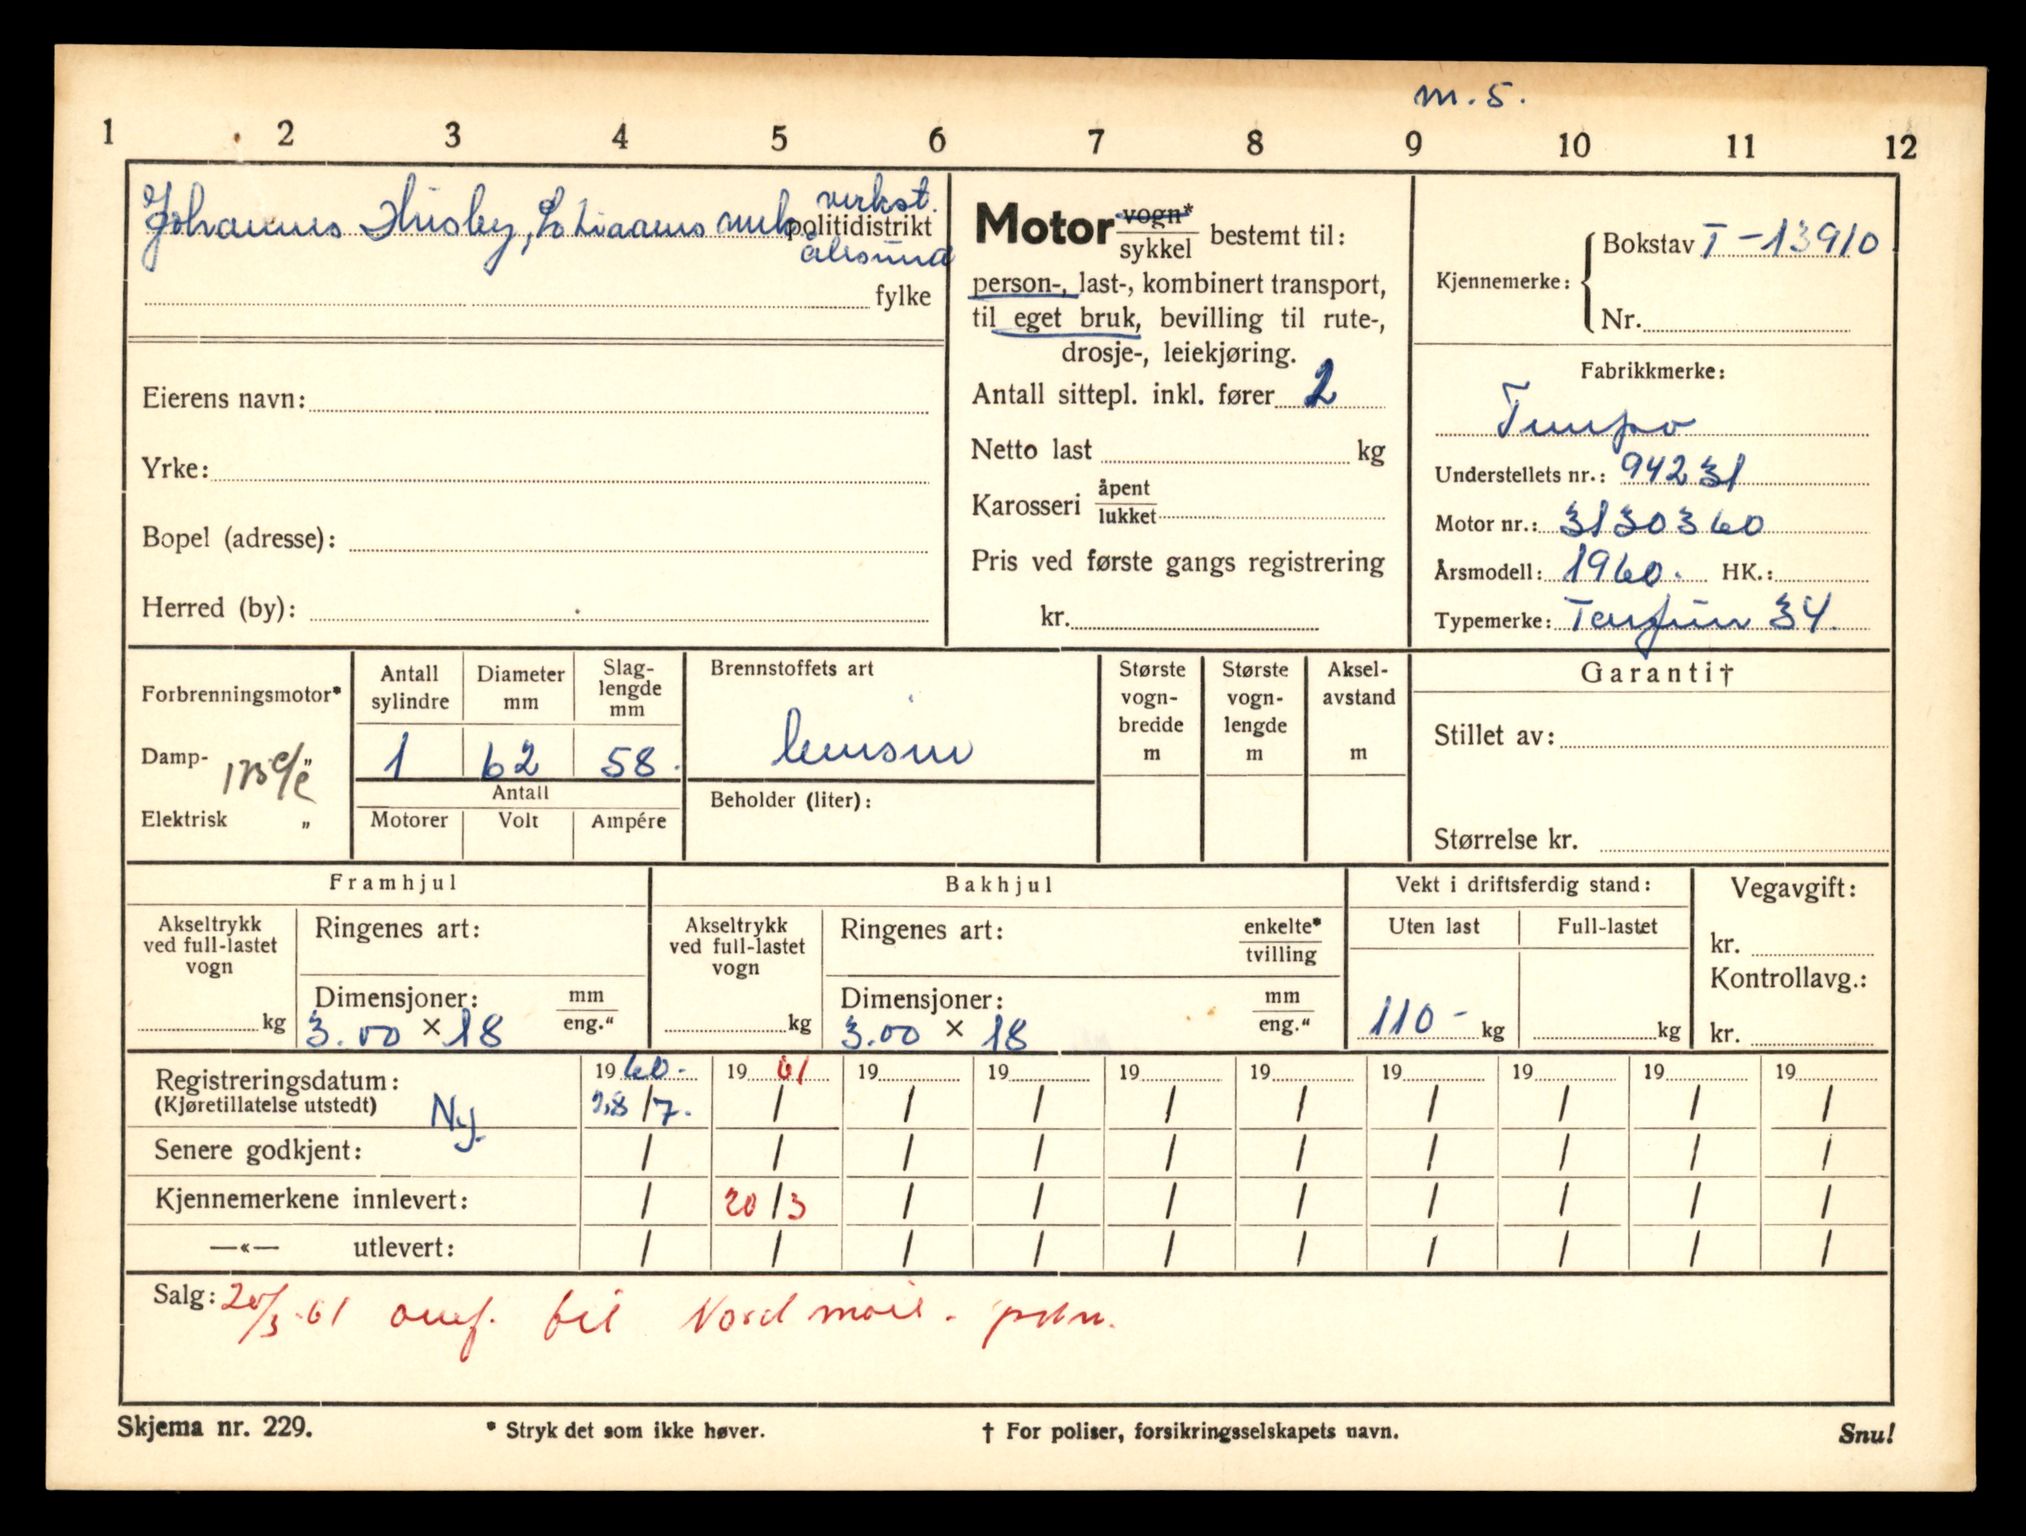 m. 5.
1 2 3 4 5 6 7 8 9 10 11 12
Johannes Husby, verkst.
politidistrikt
Ålesund
fylke
Eierens navn:
Yrke:
Bopel (adresse):
Herred (by):
Motor vogn* / sykkel bestemt til:
person-, last-, kombinert transport,
til eget bruk, bevilling til rute-,
drosje-, leiekjøring.
Antall sittepl. inkl. fører 2
Netto last kg
Karosseri åpent / lukket
Pris ved første gangs registrering
kr.
Kjennemerke: { Bokstav T-13910
Nr.
Fabrikkmerke:
Tempo
Understellets nr.: 94231
Motor nr.: 3130360
Årsmodell: 1960. HK.:
Typemerke: Taifun 34.
Forbrenningsmotor*
Damp- "
175 c/c
Elektrisk "
Antall sylindre
Diameter mm
Slag-
lengde
mm
1 62 58.
Antall
Motorer Volt Ampére
Brennstoffets art
bensin
Beholder (liter):
Største
vogn-
bredde
m
Største
vogn-
lengde
m
Aksel-
avstand
m
Garanti†
Stillet av:
Størrelse kr.
Framhjul
Akseltrykk
ved full-lastet
vogn
kg
Ringenes art:
Dimensjoner: mm / eng."
3.00 × 18
Bakhjul
Akseltrykk
ved full-lastet
vogn
kg
Ringenes art: enkelte* / tvilling
Dimensjoner: mm / eng."
3.00 × 18
Vekt i driftsferdig stand:
Uten last Full-lastet
110 - kg kg
Vegavgift:
kr.
Kontrollavg.:
kr.
Registreringsdatum: 1960. 1961 19 19 19 19 19 19 19 19
(Kjøretillatelse utstedt) Ny. 28/7. / / / / / / / / /
Senere godkjent: / / / / / / / / / /
Kjennemerkene innlevert: / 20/3 / / / / / / / /
—«— utlevert: / / / / / / / / / /
Salg: 20/3-61 overf. til Nordmøre. pdm.
Skjema nr. 229. * Stryk det som ikke høver. † For poliser, forsikringsselskapets navn. Snu!